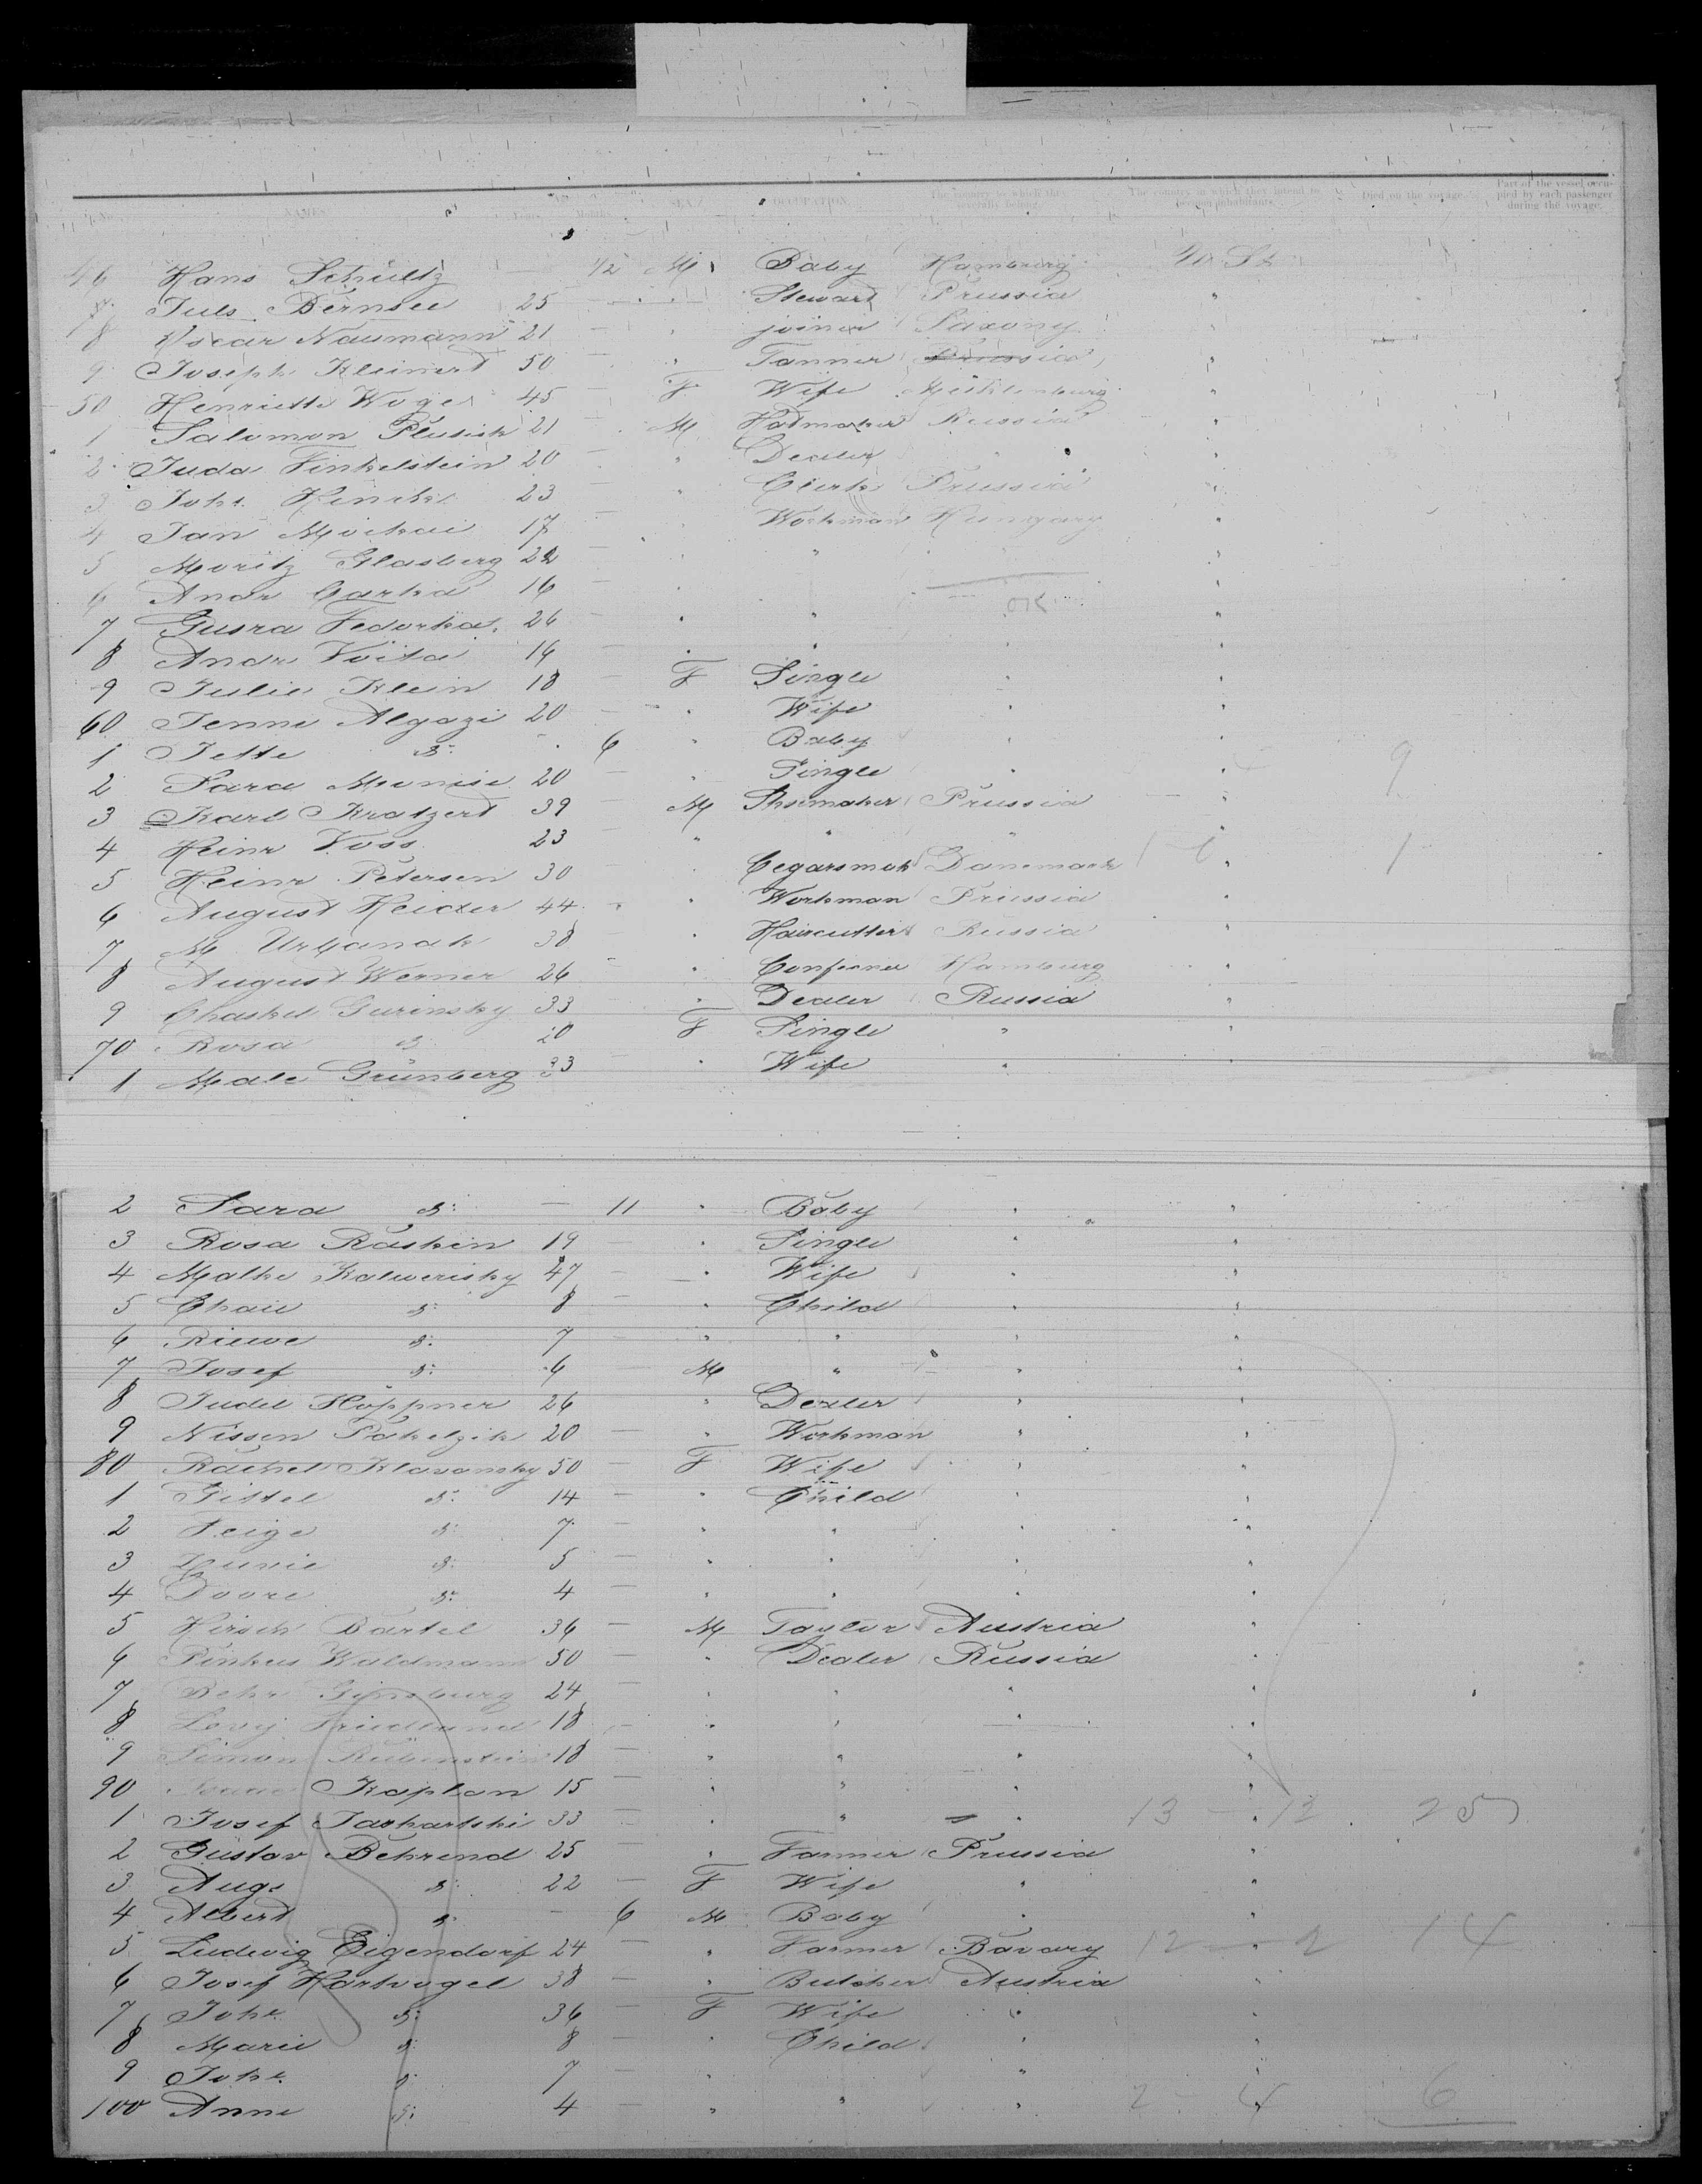 NAMES. Years. Months. SEX. OCCUPATION. The country to which they severally belong. The country in which they intend to become inhabitants. Died on the voyage. Part of the vessel occupied by each passenger during the voyage.
46 Hans Schultz 1/2 M Baby Hamburg U. St.
7 Juls Bernsee 25 — " Stewart Prussia "
8 Oscar Naumann 21 — " joiner Saxony "
9 Joseph Kleinert 50 " Tanner Prussia "
50 Henriette Woge 45 — F Wife "
1 Salomon Plusish 21 M Hatmaker Russia "
2 Juda Finkelstein 20 — " Dealer " "
3 Joh. 23 — " Clerk Prussia "
4 Jan 17 — " Workman Hungary "
5 Moritz Glasberg 22 — " " " "
6 Andr 16 — " " "
7 Fedorka 26 — " " "
8 Andr Voita 14 — " " " "
9 Julie Klein 18 — F Single " "
60 Jenni Algazi 20 — " Wife " "
1 Jette d: - 6 " Baby " "
2 Sara 20 — " Single " " 9
3 Karl Kratzert 39 — M Shoemaker Prussia "
4 Heinr Voss 23 " " " "
5 Heinr Petersen 30 " Cegarsmak Danemark " 1
6 August 44 " " Workman Prussia "
7 M Urbanak 38 " Haircutter Russia "
8 August Werner 26 — " Hamburg "
9 Chaskel Gurinsky 33 " Dealer Russia "
70 Rosa d: 20 F Single " "
1 Male Grünberg 33 — " Wife " "
2 Sara d: — 11 " Baby " "
3 Rosa Raskin 19 — " Single " "
4 Malke Kalwerisky 47 — " Wife " "
5 Chaie d: 8 — " Child " "
6 Riewe d: 7 — " " " "
7 Josef d: 6 M " " "
8 Judel Höppner 26 — " Dealer " "
9 Nissen 20 — " Workman " "
80 Rachel Klavansky 50 — F Wife " "
1 Gittel d: 14 — " Child " "
2 Feige d: 7 — " " " "
3 d: 5 — " " " "
4 Dvore d: 4 — " " " "
5 Hirsch Bartel 36 — M Taylor Austria "
6 Pinkus Waldmann 50 — " Dealer Russia "
7 Behr Ginsburg 24 — " " " "
8 Levy Friedland 18 — " " " "
9 Simon Rubinstein 18 — " " " "
90 Kaplan 15 — " " " "
1 Josef 33 — " " " 13 " 12 25
2 Gustav Behrend 25 " Farmer Prussia "
3 Aug. d: 22 — F Wife " "
4 Albert d: — 6 M Baby " "
5 Ludwig Eigendorf 24 — " Farmer Bavary 12 " 2 14
6 Josef Hartvogel 38 — " Butcher Austria "
7 Joh. d: 36 — F Wife " "
8 Marie d: 8 — " Child " "
9 Joh. d: 7 — " " "
100 Anne d: 4 — " " " 2 - 4 6